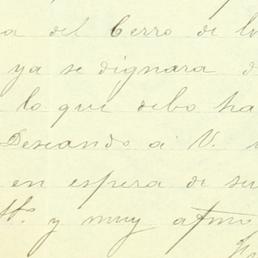 a del Cerro de
ya se dignara
lo que debo ha
Deseando a V.
en espera de su
y muy atmo